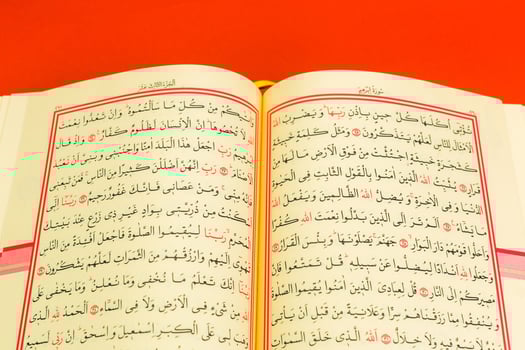 سُورَةُ إِبْرٰهِيمَ
تُؤْتِي أُكُلَهَا كُلَّ حِينٍ بِإِذْنِ رَبِّهَا وَيَضْرِبُ اللهُ
الْأَمْثَالَ لِلنَّاسِ لَعَلَّهُمْ يَتَذَكَّرُونَ وَمَثَلُ كَلِمَةٍ خَبِيثَةٍ
كَشَجَرَةٍ خَبِيثَةٍ اجْتُثَّتْ مِنْ فَوْقِ الْأَرْضِ مَا لَهَا مِنْ
قَرَارٍ يُثَبِّتُ اللهُ الَّذِينَ آمَنُوا بِالْقَوْلِ الثَّابِتِ فِي الْحَيٰوةِ
الدُّنْيَا وَفِي الْآخِرَةِ وَيُضِلُّ اللهُ الظَّالِمِينَ وَيَفْعَلُ اللهُ
مَا يَشَاءُ أَلَمْ تَرَ إِلَى الَّذِينَ بَدَّلُوا نِعْمَتَ اللهِ كُفْرًا
وَأَحَلُّوا قَوْمَهُمْ دَارَ الْبَوَارِ جَهَنَّمَ يَصْلَوْنَهَا وَبِئْسَ الْقَرَارُ
وَجَعَلُوا لِلّٰهِ أَنْدَادًا لِيُضِلُّوا عَنْ سَبِيلِهِ قُلْ تَمَتَّعُوا فَإِنَّ
مَصِيرَكُمْ إِلَى النَّارِ قُلْ لِعِبَادِيَ الَّذِينَ آمَنُوا يُقِيمُوا الصَّلٰوةَ
وَيُنْفِقُوا مِمَّا رَزَقْنَاهُمْ سِرًّا وَعَلَانِيَةً مِنْ قَبْلِ أَنْ يَأْتِيَ
فِيهِ وَلَا خِلَالٌ اللهُ الَّذِي خَلَقَ السَّمٰوَاتِ
الْجُزْءُ الثَّالِثَ عَشَرَ
مِنْ كُلِّ مَا سَأَلْتُمُوهُ وَإِنْ تَعُدُّوا نِعْمَتَ
لَا تُحْصُوهَا إِنَّ الْإِنْسَانَ لَظَلُومٌ كَفَّارٌ وَإِذْ قَالَ
رَبِّ اجْعَلْ هٰذَا الْبَلَدَ آمِنًا وَاجْنُبْنِي وَبَنِيَّ أَنْ نَعْبُدَ
رَبِّ إِنَّهُنَّ أَضْلَلْنَ كَثِيرًا مِنَ النَّاسِ فَمَنْ تَبِعَنِي
مِنِّي وَمَنْ عَصَانِي فَإِنَّكَ غَفُورٌ رَحِيمٌ
مِنْ ذُرِّيَّتِي بِوَادٍ غَيْرِ ذِي زَرْعٍ عِنْدَ بَيْتِكَ
الْمُحَرَّمِ رَبَّنَا لِيُقِيمُوا الصَّلٰوةَ فَاجْعَلْ أَفْئِدَةً مِنَ النَّاسِ
تَهْوِي إِلَيْهِمْ وَارْزُقْهُمْ مِنَ الثَّمَرَاتِ لَعَلَّهُمْ يَشْكُرُونَ
رَبَّنَا إِنَّكَ تَعْلَمُ مَا نُخْفِي وَمَا نُعْلِنُ وَمَا يَخْفٰى عَلَى
اللهِ مِنْ شَيْءٍ فِي الْأَرْضِ وَلَا فِي السَّمَاءِ الْحَمْدُ لِلّٰهِ الَّذِي
وَهَبَ لِي عَلَى الْكِبَرِ إِسْمٰعِيلَ وَإِسْحٰقَ إِنَّ رَبِّي لَسَمِيعُ